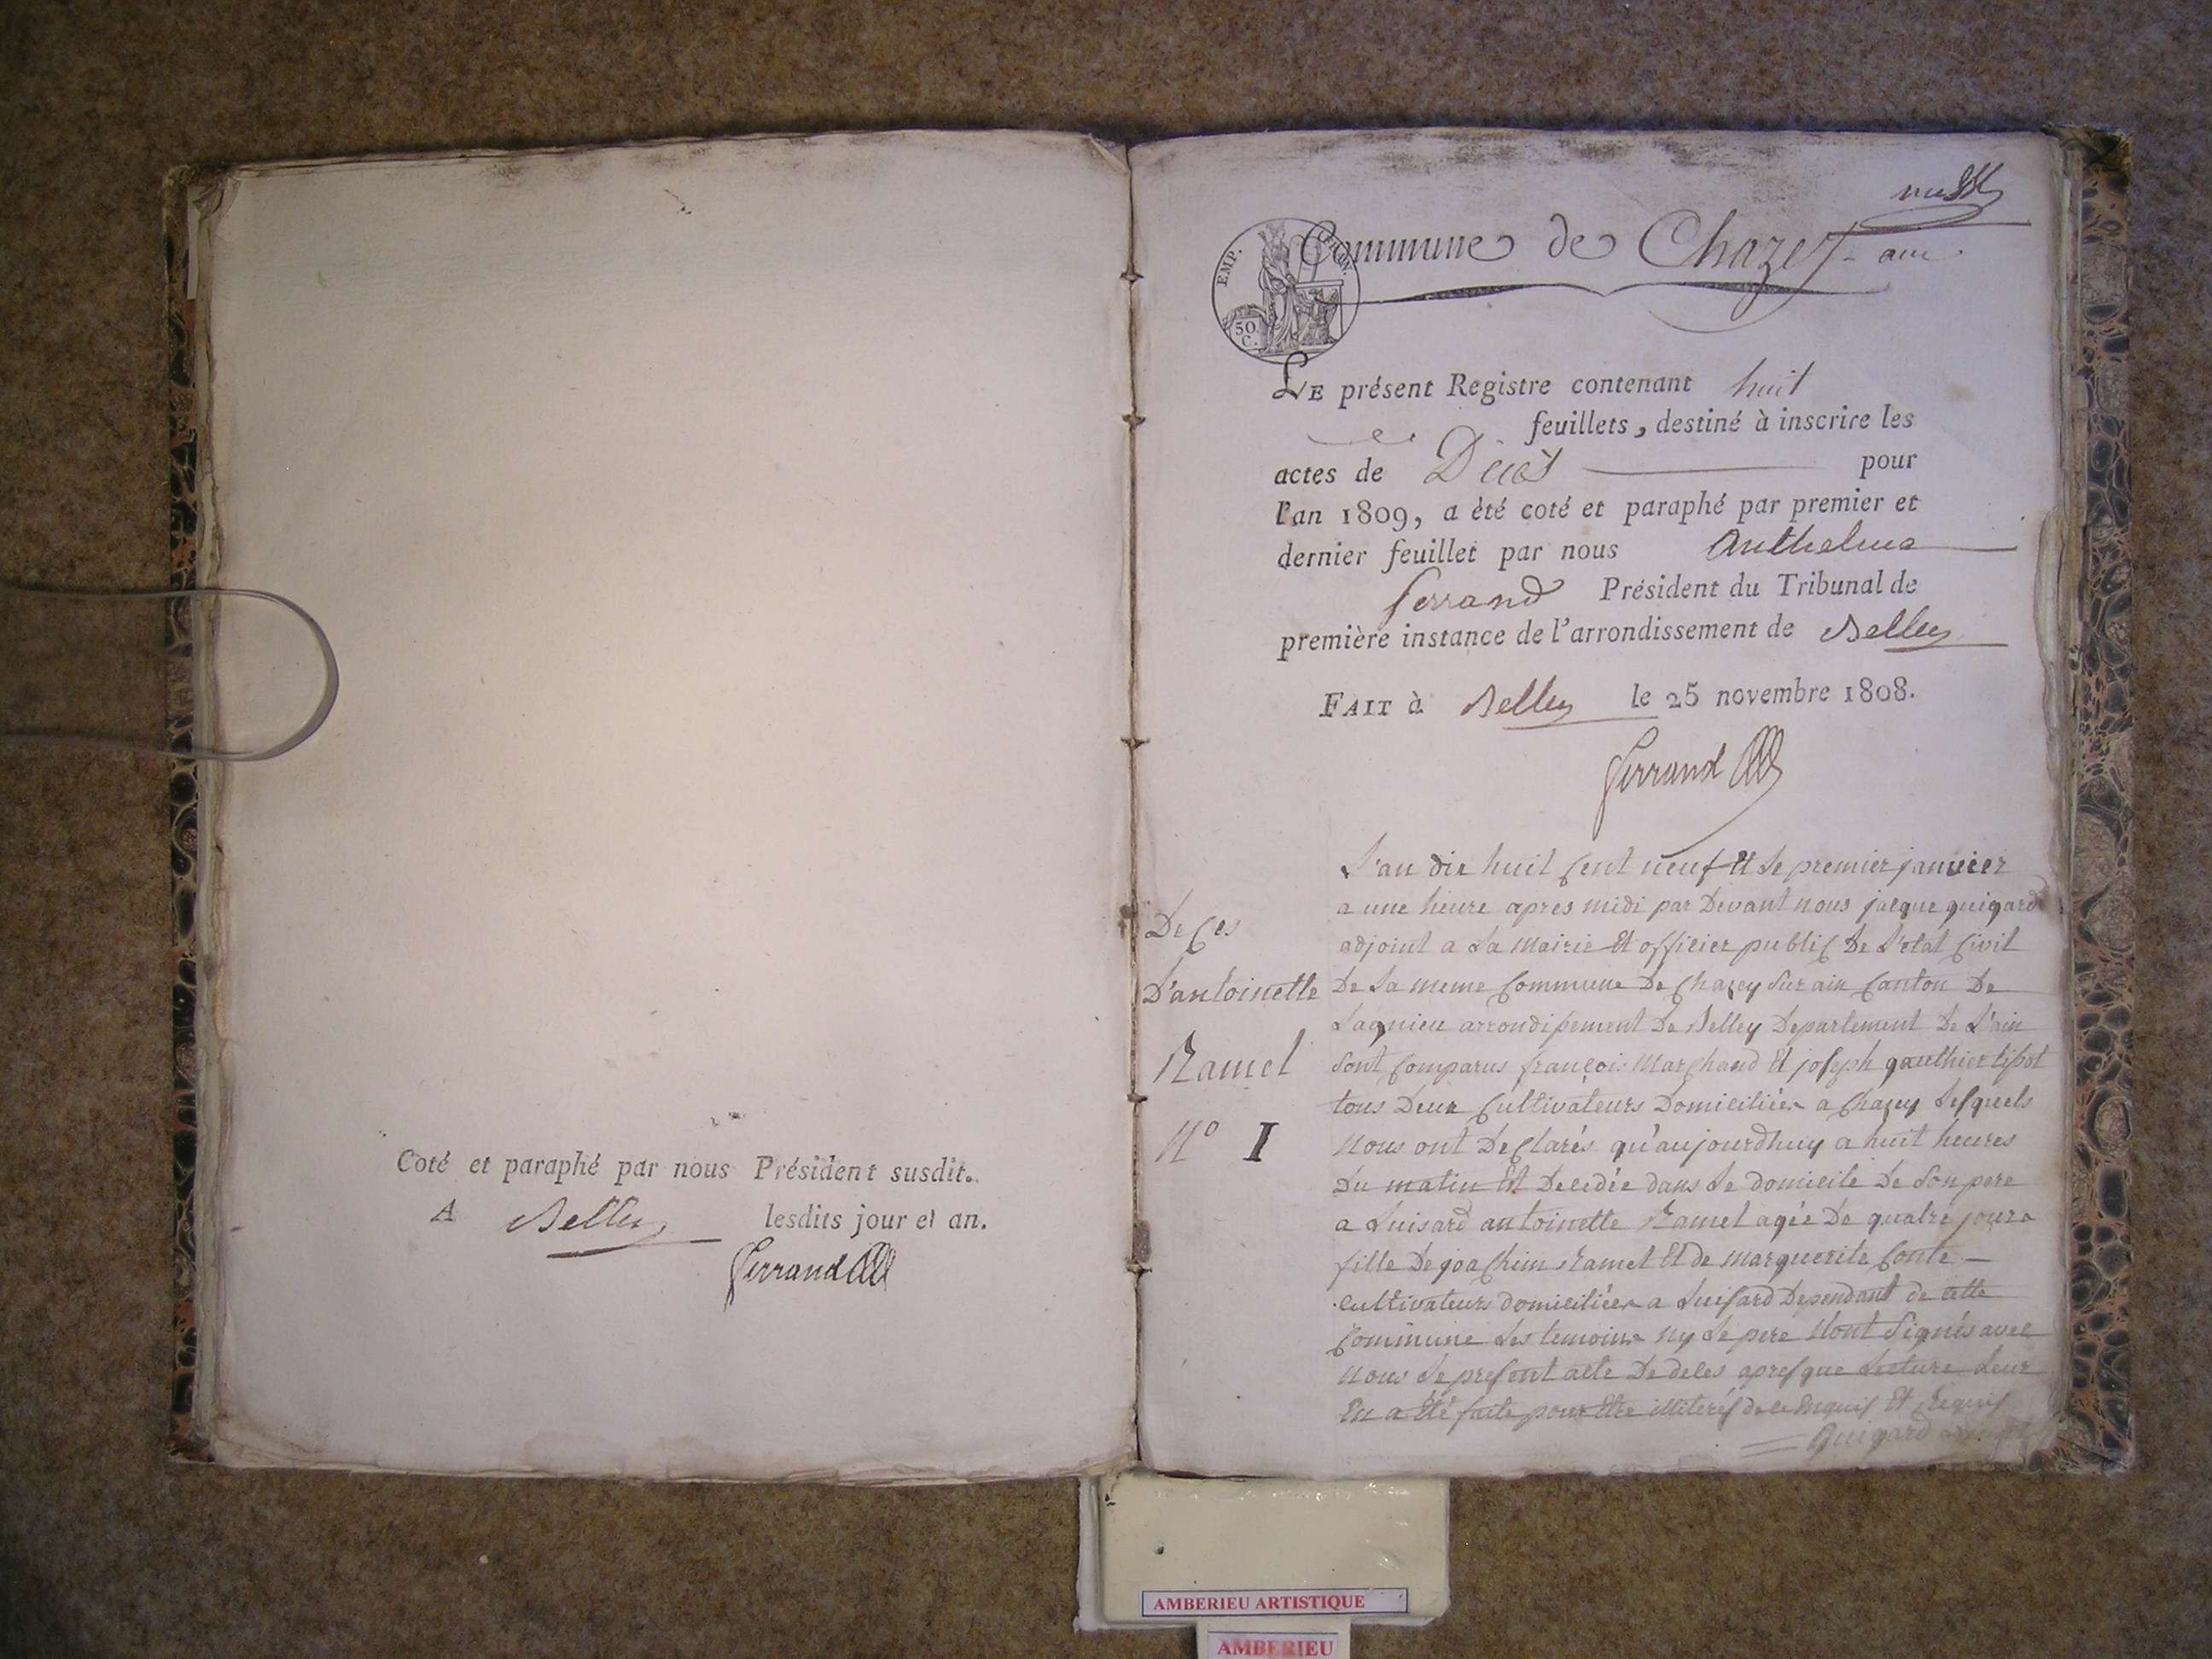 Coté et paraphé par nous Président susdit.
A Belley lesdits jour et an.
Ferrand
Commune de Chazey-ain
EMP. FRAN.
50
C.
LE présent Registre contenant huit
feuillets, destiné à inscrire les
actes de Décès pour
l'an 1809, a été coté et paraphé par premier et
dernier feuillet par nous Anthelme
ferrand Président du Tribunal de
première instance de l'arrondissement de Belley
FAIT à Belley le 25 novembre 1808.
Ferrand
De Ces
D'antoinette
Ramel
N° I
L'an dix huit Cent neuf Et Le premier janvier
a une heure apres midi par Devant nous jacque guigard
adjoint a La Mairie Et officier public De L'etat Civil
De La meme Commune De Chazey Sur ain Canton De
Lagnieu arrondissement De Belley Departement De L'ain
Sont Comparus françois Marchand Et joseph gauthier
tous Deux Cultivateurs Domiciliées a Chazey Lesquels
Nous ont Declarés qu'aujourdhuy a huit heures
Du matin Est Decedée dans Le domicile De Son pere
a Luisard antoinette Ramel agée De quatre jours
fille De joachim Ramel Et de marguerite Conte
Cultivateurs domiciliées a Luisard Dependant de cette
Commune Les temoins ny Le pere N'ont Signés avec
Nous Le present acte De deces apres que Lecture Leur
En a Été faite pour Etre illiterés de ce Enquis Et Requis
Guigard
AMBERIEU ARTISTIQUE
AMBERIEU